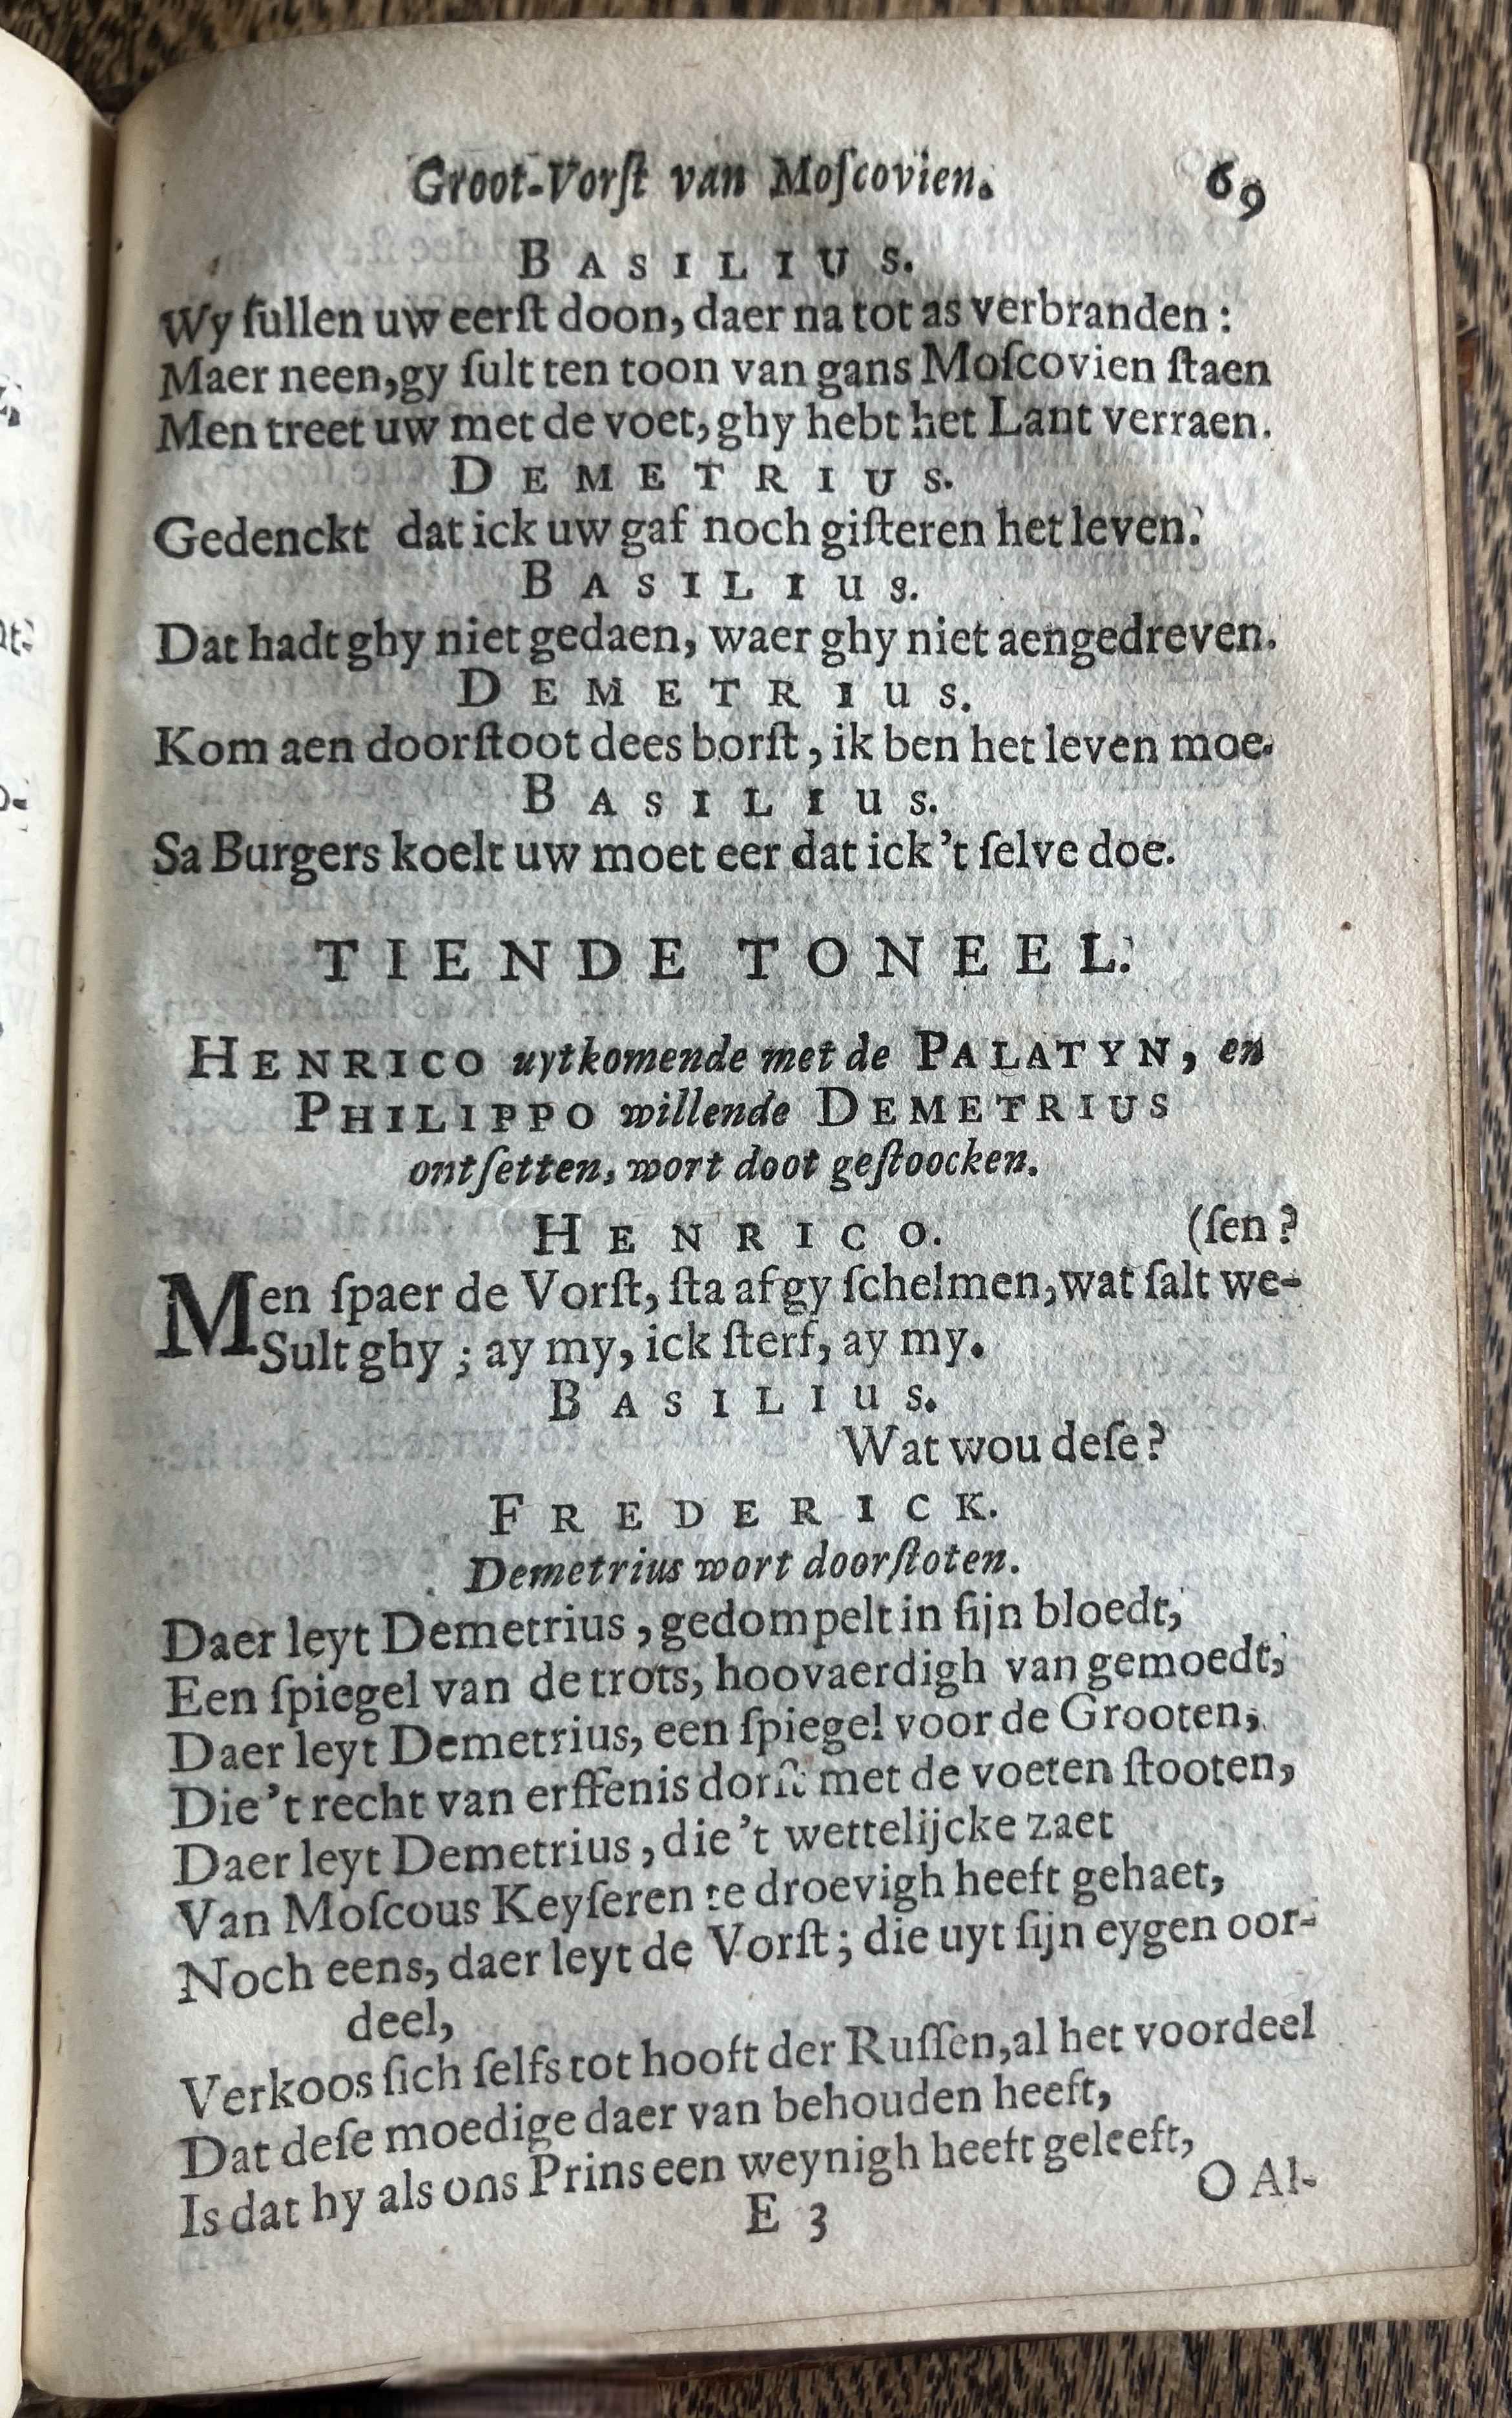 Groot-Vorſt van Moſcovien. 69
BASILIUS.
Wy ſullen uw eerſt doon, daer na tot as verbranden:
Maer neen, gy ſult ten toon van gans Moſcovien ſtaen
Men treet uw met de voet, ghy hebt het Lant verraen.
DEMETRIUS.
Gedenckt dat ick uw gaf noch giſteren het leven.
BASILIUS.
Dat hadt ghy niet gedaen, waer ghy niet aengedreven.
DEMETRIUS.
Kom aen doorſtoot dees borſt, ik ben het leven moe.
BASILIUS.
Sa Burgers koelt uw moet eer dat ick 't ſelve doe.
TIENDE TONEEL.
HENRICO uytkomende met de PALATYN, en
PHILIPPO willende DEMETRIUS
ontſetten, wort doot geſtoocken.
HENRICO. (ſen?
Men ſpaer de Vorſt, ſta af gy ſchelmen, wat ſalt we-
Sult ghy; ay my, ick ſterf, ay my.
BASILIUS.
Wat wou deſe?
FREDERICK.
Demetrius wort doorſtoten.
Daer leyt Demetrius, gedompelt in ſijn bloedt,
Een ſpiegel van de trots, hoovaerdigh van gemoedt,
Daer leyt Demetrius, een ſpiegel voor de Grooten,
Die 't recht van erffenis dorſt met de voeten ſtooten,
Daer leyt Demetrius, die 't wettelijcke zaet
Van Moſcous Keyſeren te droevigh heeft gehaet,
Noch eens, daer leyt de Vorſt; die uyt ſijn eygen oor-
deel,
Verkoos ſich ſelfs tot hooft der Ruſſen, al het voordeel
Dat deſe moedige daer van behouden heeft,
Is dat hy als ons Prins een weynigh heeft geleeft,
E 3 O Al-